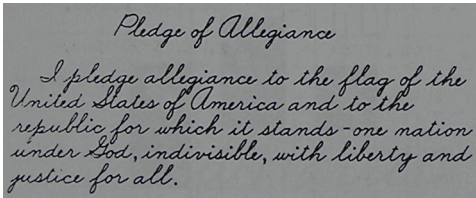 Pledge of Allegiance
I pledge allegiance to the flag of the
United States of America and to the
republic for which it stands-one nation
under God, indivisible, with liberty and
justice for all.